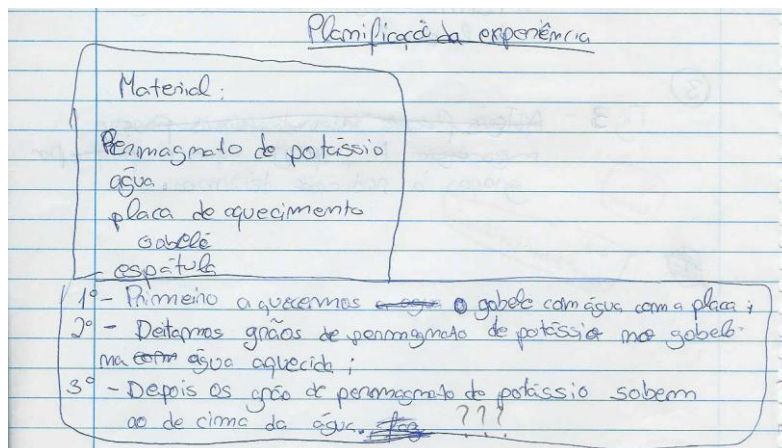 Planificaçã da experiência
Material:
Permagnato de potássio
água
placa de aquecimento
Gobelé
espátula
1º - Primeiro aquecermos o gobele com água com a placa;
2º - Deitamos grãos de permagnato de potássio no gobelé
na água aquecida;
3º - Depois os grão de permagnato de potássio sobem
ao de cima da água. ???